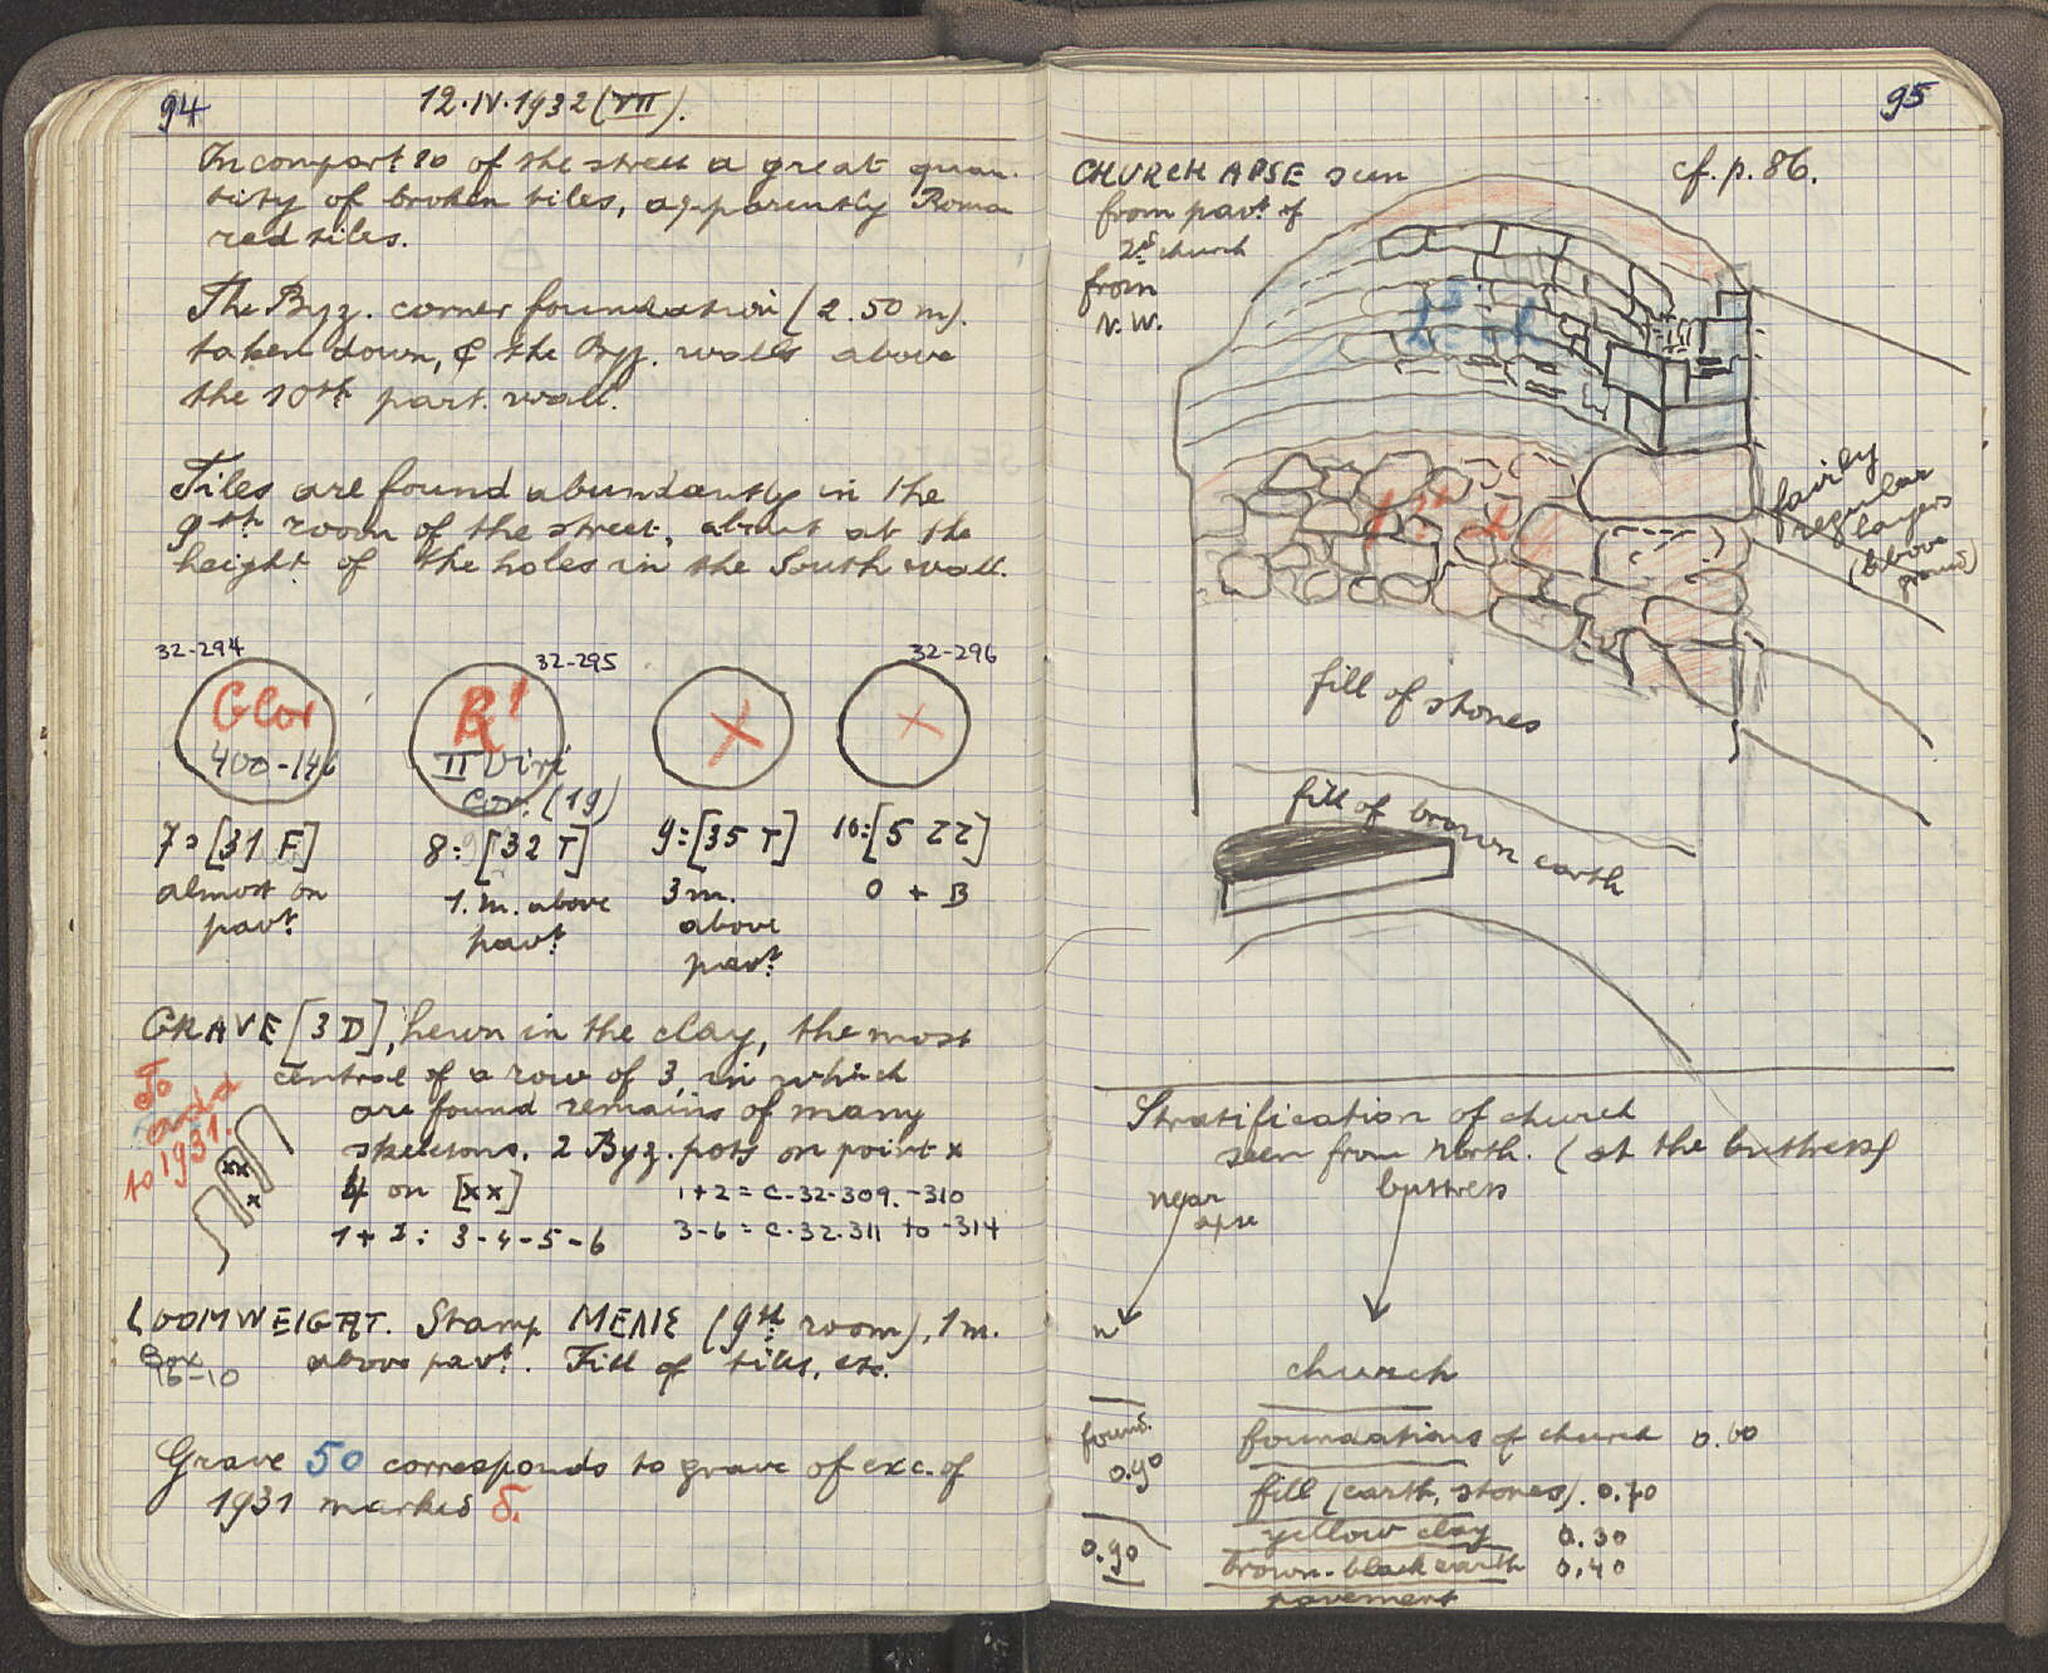 94
12.IV.1932 (VII).
In compart. 10 of the street a great quan-
tity of broken tiles, apparently Roma
red tiles.
The Byz. corner foundation (2.50 m).
taken down, & the Byz. walls above
the 10th part. wall.
Tiles are found abundantly in the
9th room of the street, about at the
height of the holes in the South wall.
32-294
32-295
32-296
GCor
400-146
R'
II Viri
Cor. (19)
X
X
7= [31 F]
8: [32 T]
9:[35 T]
10:[5 ZZ]
almost on
pavt.
1. m. above
pavt.
3 m.
above
pavt.
0 + B
GRAVE [3 D], hewn in the clay, the most
central of a row of 3, in which
are found remains of many
skeletons. 2 Byz. pots on point x
4 on [xx]
1+2 = C-32-309. -310
1+2: 3-4-5-6
3-6 = C.32.311 to -314
To
add
to 1931.
xx
x
LOOMWEIGHT. Stamp MENE (9th room), 1 m.
above pavt. Fill of tiles, etc.
Box
16-10
Grave 50 corresponds to grave of exc. of
1931 marked 5.
95
CHURCH APSE seen
from pavt of
2d church
from
N.W.
cf. p. 86.
fairly
regular
layers
(above
ground)
fill of stones
fill of brown earth
Stratification of church
seen from North. (at the buttress)
near
apse
buttress
church
found.
0.90
foundations of church 0.60
fill (earth, stones). 0.70
yellow clay 0.30
0.90
brown-black earth 0.40
pavement